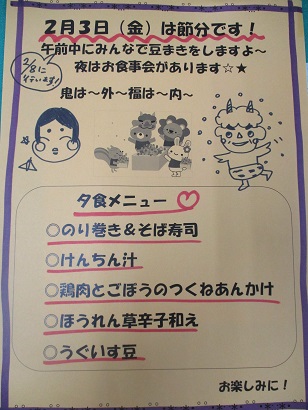 2月3日(金)は節分です!
午前中にみんなで豆まきをしますよ～
夜はお食事会があります☆★
鬼は～外～福は～内～
夕食メニュー♡
○のり巻き＆そば寿司
○けんちん汁
○鶏肉とごぼうのつくねあんかけ
○ほうれん草辛子和え
○うぐいす豆
お楽しみに！